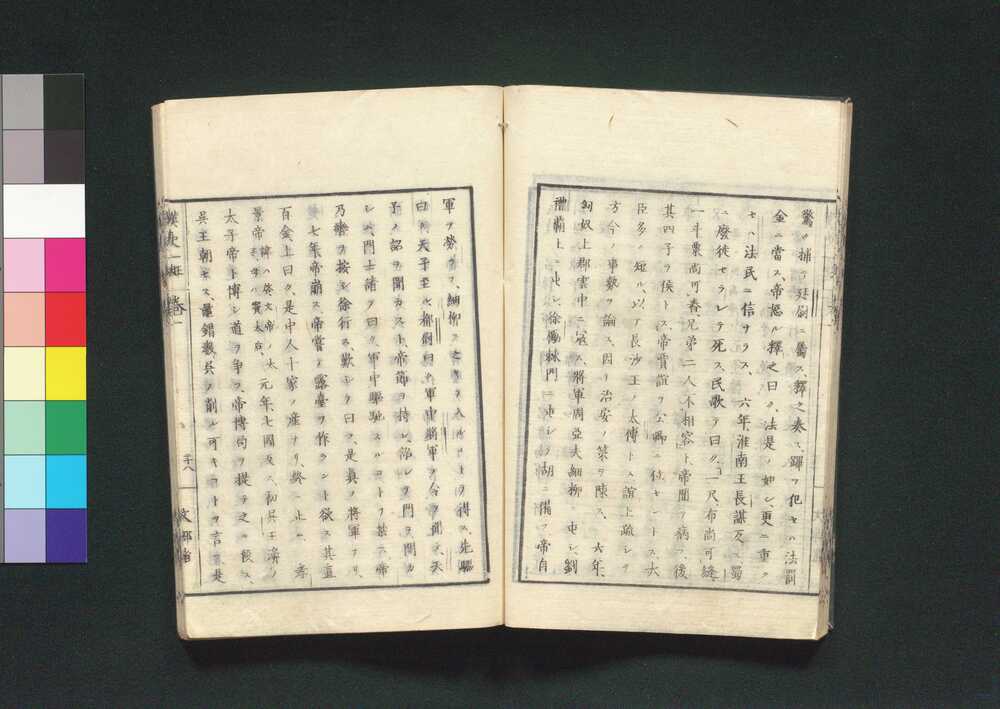 驚ク捕ヘ廷尉ニ屬ス、釋之奏ス、蹕ヲ犯セハ法罰
金ニ當ス、帝怒ル釋之曰ク、法是ノ如シ、更ニ重ク
セハ法民ニ信ヲラス、六年淮南王長謀反ス、蜀
ニ廢徙セラレテ死ス、民歌テ曰ク、一尺ノ布尚可縫、
一斗粟尚可舂、兄弟二人不相容ト帝聞テ病フ、後
其四子ヲ侯トス、帝賈誼ヲ公卿ニ位セントス大
臣多ク短ル、以テ長沙王ノ太傅トス誼上疏シテ
方今ノ事勢ヲ論ス、因リ治安ノ策ヲ陳ス、六年、
匈奴上郡雲中ニ寇ス、將軍周亞夫細柳ニ屯シ、劉
禮霸上ニ屯シ、徐厲棘門ニ屯シテ胡ニ備フ帝自
軍ヲ勞ラフ、細柳ニ之キテ入ルコトヲ得ス、先驅
曰ク天子至ル、都尉曰ク軍中將軍ノ令ヲ聞テ天
子ノ詔ヲ聞カスト、帝節ヲ持シ、詔シテ門ヲ開カ
シム門士請フ曰ク軍中驅馳スルコトヲ禁ス帝
乃轡ヲ按シ徐行ス、歎シテ曰ク、是眞ノ將軍ナリ、
後七年帝崩ス帝嘗テ露臺ヲ作ラント欲ス其直
百金上曰ク、是中人十家ノ産ナリ、終ニ止ム、孝
景帝 諱ハ啓文帝ノ太子母ハ竇太后、元年、七國反ス、初呉王濞ノ
太子帝ト博シ道ヲ争フ、帝博局ヲ提テ之ヲ殺ス、
呉王朝セス、鼂錯數呉ノ削ル可キコトヲ言フ是
漢史一班 巻一
二十八
文部省